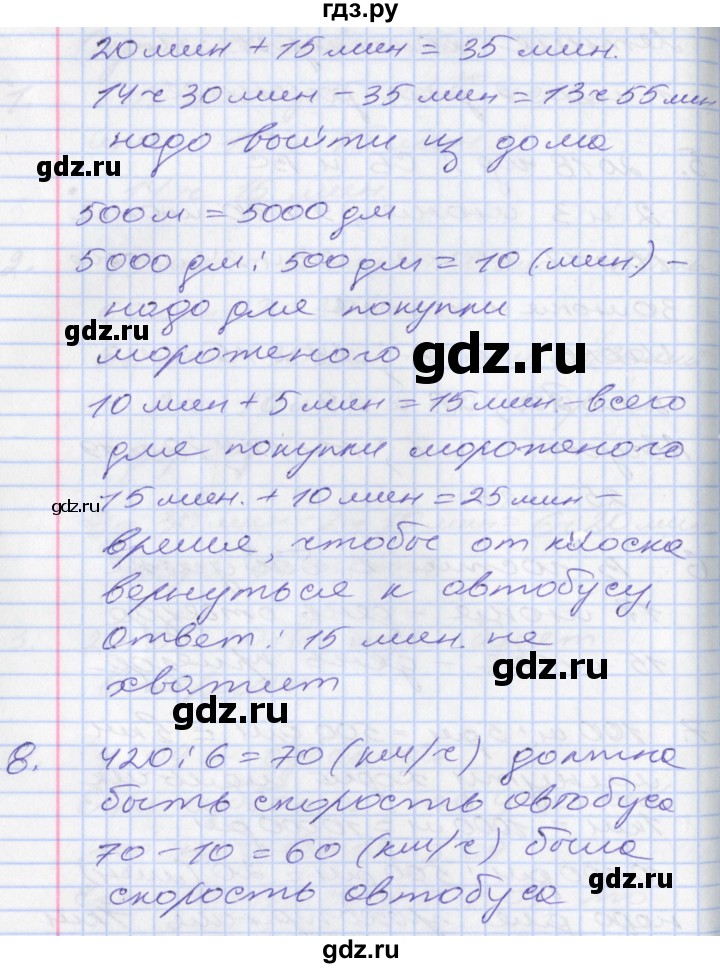 гдз.ру
20 мин + 15 мин = 35 мин.
14 ч 30 мин - 35 мин = 13 ч 55 мин
надо выйти из дома
gdz.ru
500 м = 5000 дм
5000 дм : 500 дм = 10 (мин.) -
надо для покупки
gdz.ru
мороженого
gdz.ru
10 мин + 5 мин = 15 мин. - всего
для покупки мороженого
gdz.ru
15 мин. + 10 мин = 25 мин -
gdz.ru
время, чтобы от киоска
вернуться к автобусу.
Ответ: 15 мин. не
gdz.ru
хватит
8. 420 : 6 = 70 (км/ч) должна
быть скорость автобуса
70 - 10 = 60 (км/ч) была
gdz.ru
скорость автобуса
gdz.ru